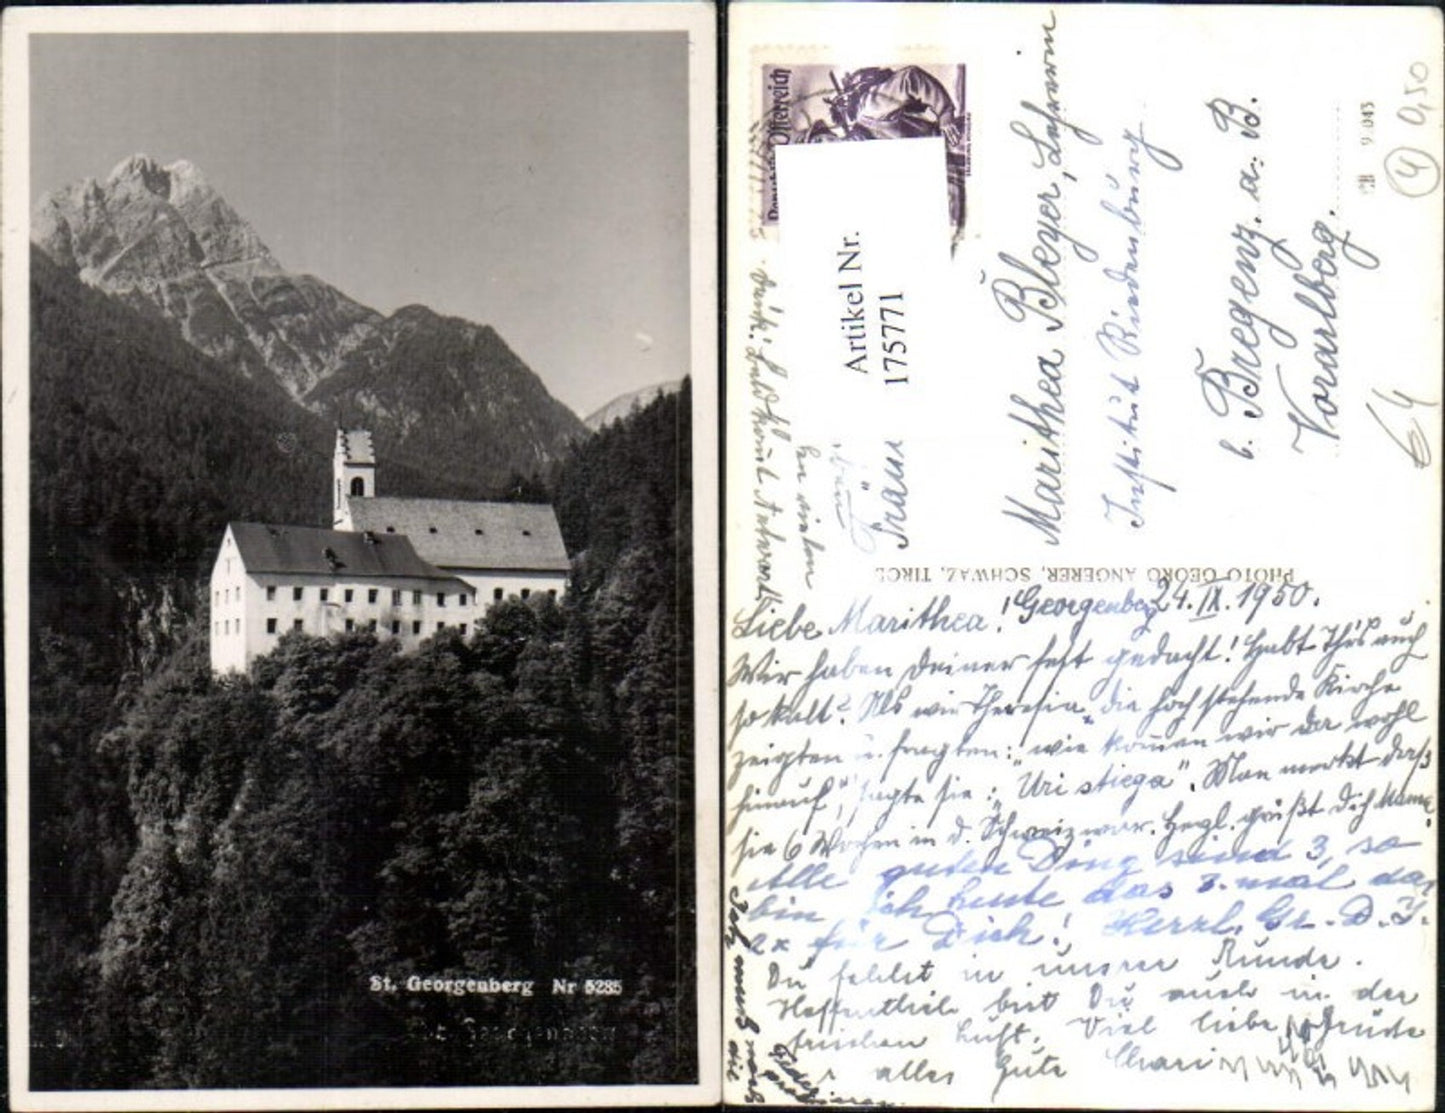 St. Georgenberg Nr 5285
Republik Österreich
Artikel Nr.
175771
Fräul
Marithea Bleyer, Lehrerin
Institut Riedenburg
b. Bregenz. a. B.
Vorarlberg.
9 043
4 0,50
64
PHOTO GEORG ANGERER, SCHWAZ, TIROL
Georgenberg 24. IX. 1950.
Liebe Marithea!
Wir haben Deiner fest gedacht! Habt Ihrs auch
so kalt? Als wir Theresia die hochstehende Kirche
zeigten u. fragten: "wie kommen wir da wohl
hinauf", sagte sie: "Uri stiega". Man merkt dass
sie 6 Wochen in d. Schweiz war. Hrzl. grüßt Dich Mama.
Alle guten Ding sind 3, so
bin ich heute das 3. mal da,
2x für Dich! Herzl. Gr. D. I.
Du fehlst in unserer Runde.
Hoffentlich bist Du auch in der
frischen Luft. Viel liebe Grüße
alles Gute
Ich muß noch